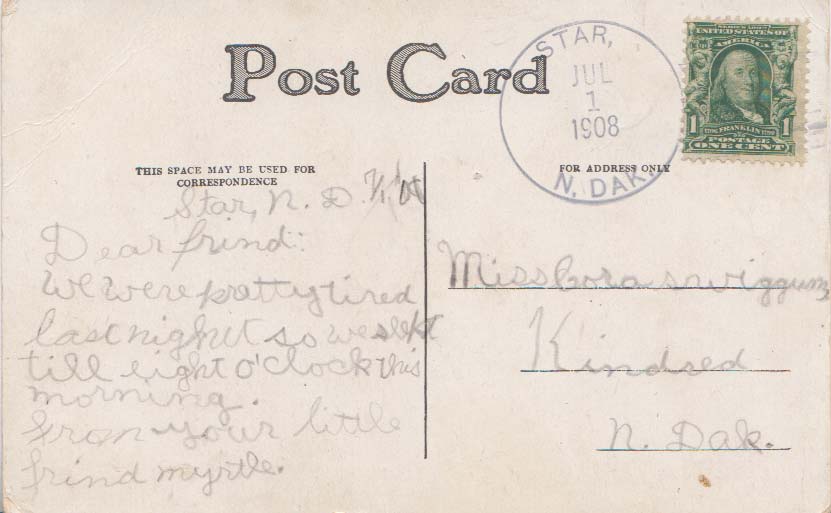 Post Card
STAR,
JUL
1
1908
N. DAK.
SERIES 1902
UNITED STATES OF
AMERICA
1 1706 FRANKLIN 1790 1
POSTAGE
ONE CENT
THIS SPACE MAY BE USED FOR
CORRESPONDENCE
FOR ADDRESS ONLY
Star, N. D. 7/1 '08
Dear frind:
We were prettytired
last nighut so we slept
till eight o'clock this
morning.
from your little
frind myrtle.
Miss Cora swiggum,
Kindred
N. Dak.